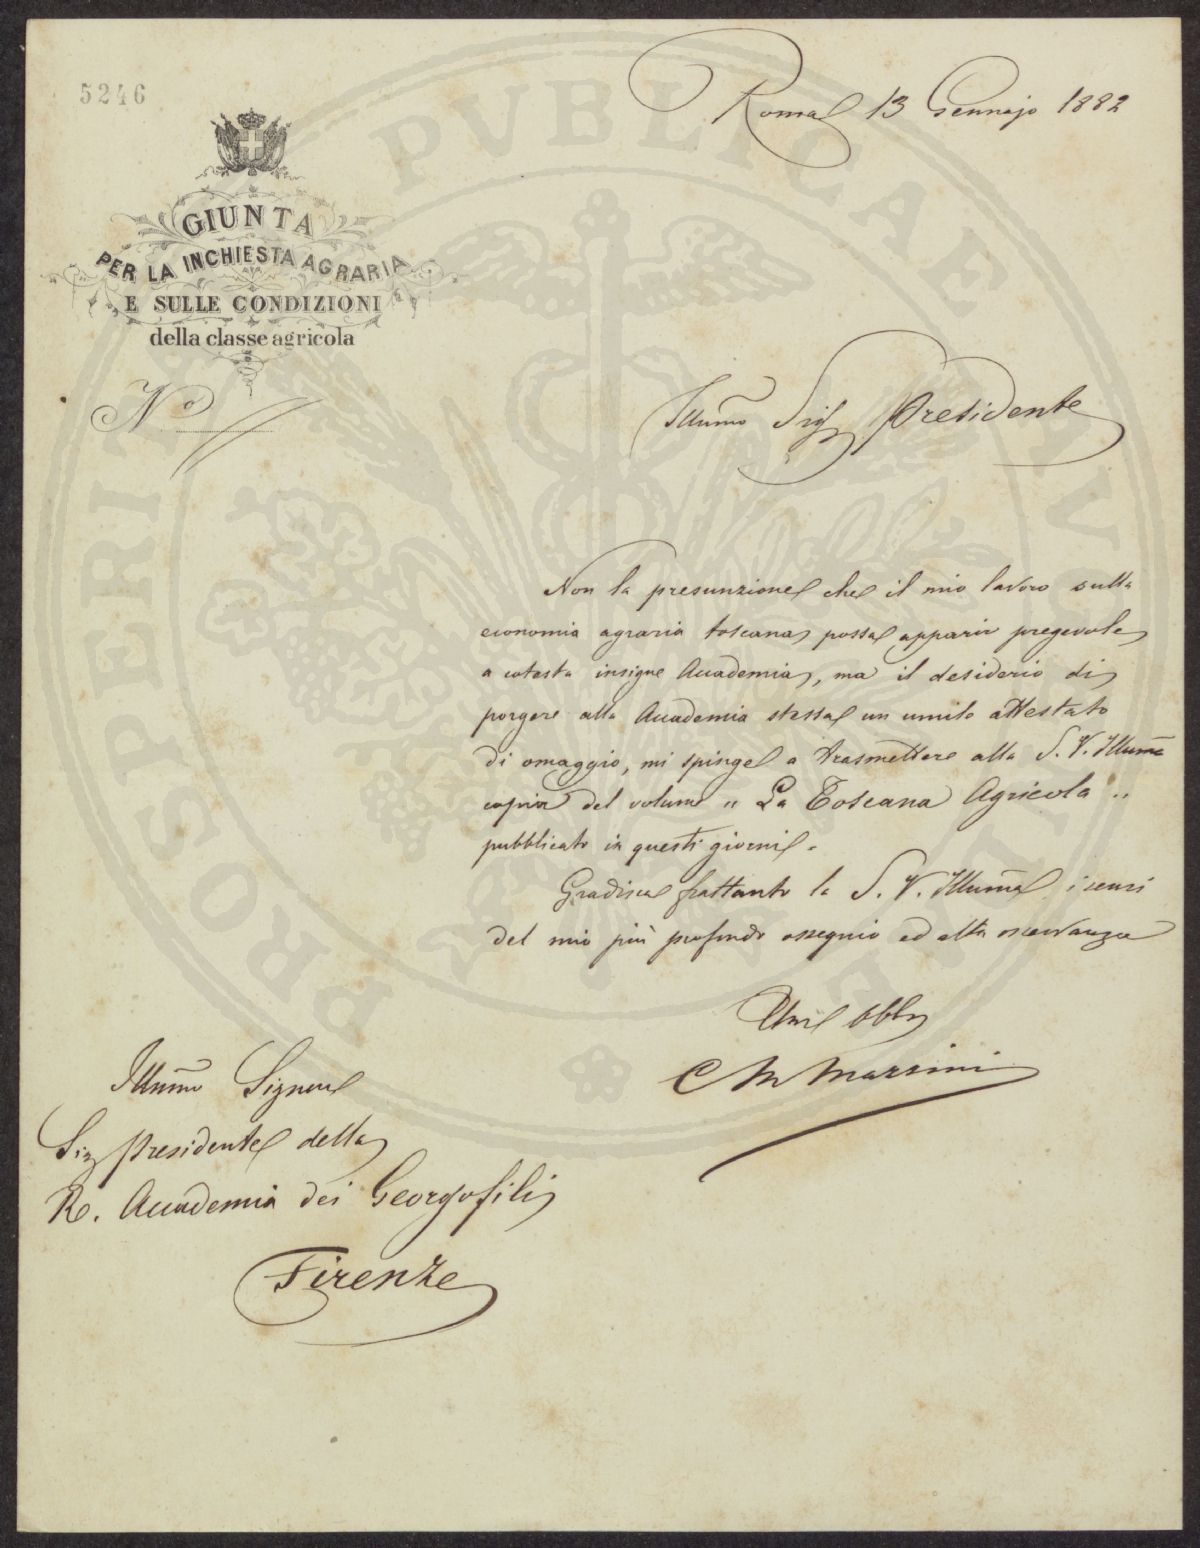 5246
Roma 13 Gennajo 1882
GIUNTA
PER LA INCHIESTA AGRARIA
E SULLE CONDIZIONI
della classe agricola
No
Illumo Sig Presidente
Non la presunzione che il mio lavoro sulla
economia agraria toscana, possa apparir pregevole
a cotesta insigne Accademia, ma il desiderio di
porgere alla Accademia stessa un umile attestato
di omaggio, mi spinge a trasmettere alla S. V. Illuma
copia del volume " La Toscana Agricola "
pubblicato in questi giorni.
Gradisca frattanto la S. V. Illuma i sensi
del mio più profondo ossequio ed alta osservanza
obblo
C M Mazzini
Illumo Signore
Sig Presidente della
R. Accademia dei Georgofili
Firenze
PROSPERITATI PVBLICAE AVGENDAE